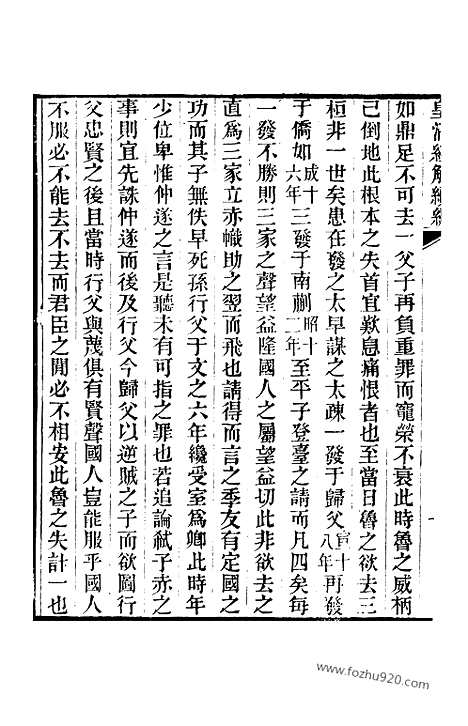 皇清經解續編
如鼎足不可去一父子再負重罪而寵榮不衰此時魯之威柄
已倒地此根本之失首宜歎息痛恨者也至當日魯之欲去三
桓非一世矣患在發之太早謀之太疎一發于歸父宣十八年再發
于僑如成十六年三發于南蒯昭十二年至平子登臺之請而凡四矣每
一發不勝則三家之聲望益隆國人之屬望益切此非欲去之
直爲三家立赤幟助之翌而飛也請得而言之季友有定國之
功而其子無佚早死孫行父于文之六年纔受室爲卿此時年
少位卑惟仲遂之言是聽未有可指之罪也若追論弑子赤之
事則宜先誅仲遂而後及行父今歸父以逆賊之子而欲圖行
父忠賢之後且當時行父與蔑俱有賢聲國人豈能服乎國人
不服必不能去不去而君臣之閒必不相安此魯之失計一也
www.fozhu920.com